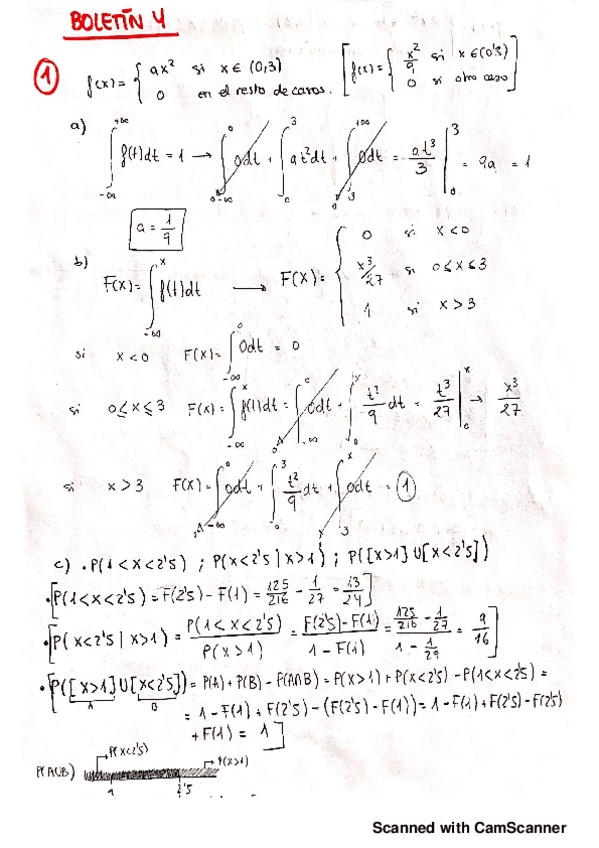 BOLETÍN 4
① f(x) = { ax² si x ∈ (0,3) [ f(x) = { x²/9 si x ∈ (0'3)
0 en el resto de casos. 0 si otro caso ]
a) ∫_{-∞}^{+∞} f(t)dt = 1 → ∫_{-∞}^{0} 0dt + ∫_{0}^{3} at²dt + ∫_{3}^{+∞} 0dt = at³/3 |_{0}^{3} = 9a = 1
a = 1/9
b) F(x) = ∫_{-∞}^{x} f(t)dt → F(x) = { 0 si x < 0
x³/27 si 0 ≤ x ≤ 3
1 si x > 3
si x < 0 F(x) = ∫_{-∞} 0dt = 0
si 0 ≤ x ≤ 3 F(x) = ∫_{-∞}^{x} f(t)dt = ∫_{-∞}^{0} 0dt + ∫_{0}^{x} t²/9 dt = t³/27 |_{0}^{x} → x³/27
si x > 3 F(x) = ∫_{-∞}^{0} 0dt + ∫_{0}^{3} t²/9 dt + ∫_{3}^{x} 0dt = ①
c) . P(1 < x < 2'5) ; P(x < 2'5 | x > 1) ; P([x > 1] U [x < 2'5])
· [P(1 < x < 2'5) = F(2'5) - F(1) = 125/216 - 1/27 = 13/24]
· [P(x < 2'5 | x > 1) = P(1 < x < 2'5)/P(x > 1) = F(2'5) - F(1)/1 - F(1) = 125/216 - 1/27 / 1 - 1/27 = 9/16]
· [P([x > 1] U [x < 2'5]) = P(A) + P(B) - P(A∩B) = P(x > 1) + P(x < 2'5) - P(1 < x < 2'5) =
A B
= 1 - F(1) + F(2'5) - (F(2'5) - F(1)) = 1 - F(1) + F(2'5) - F(2'5)
+ F(1) = 1 ]
P(x < 2'5)
P(A∪B) P(x > 1)
1 2'5
Scanned with CamScanner